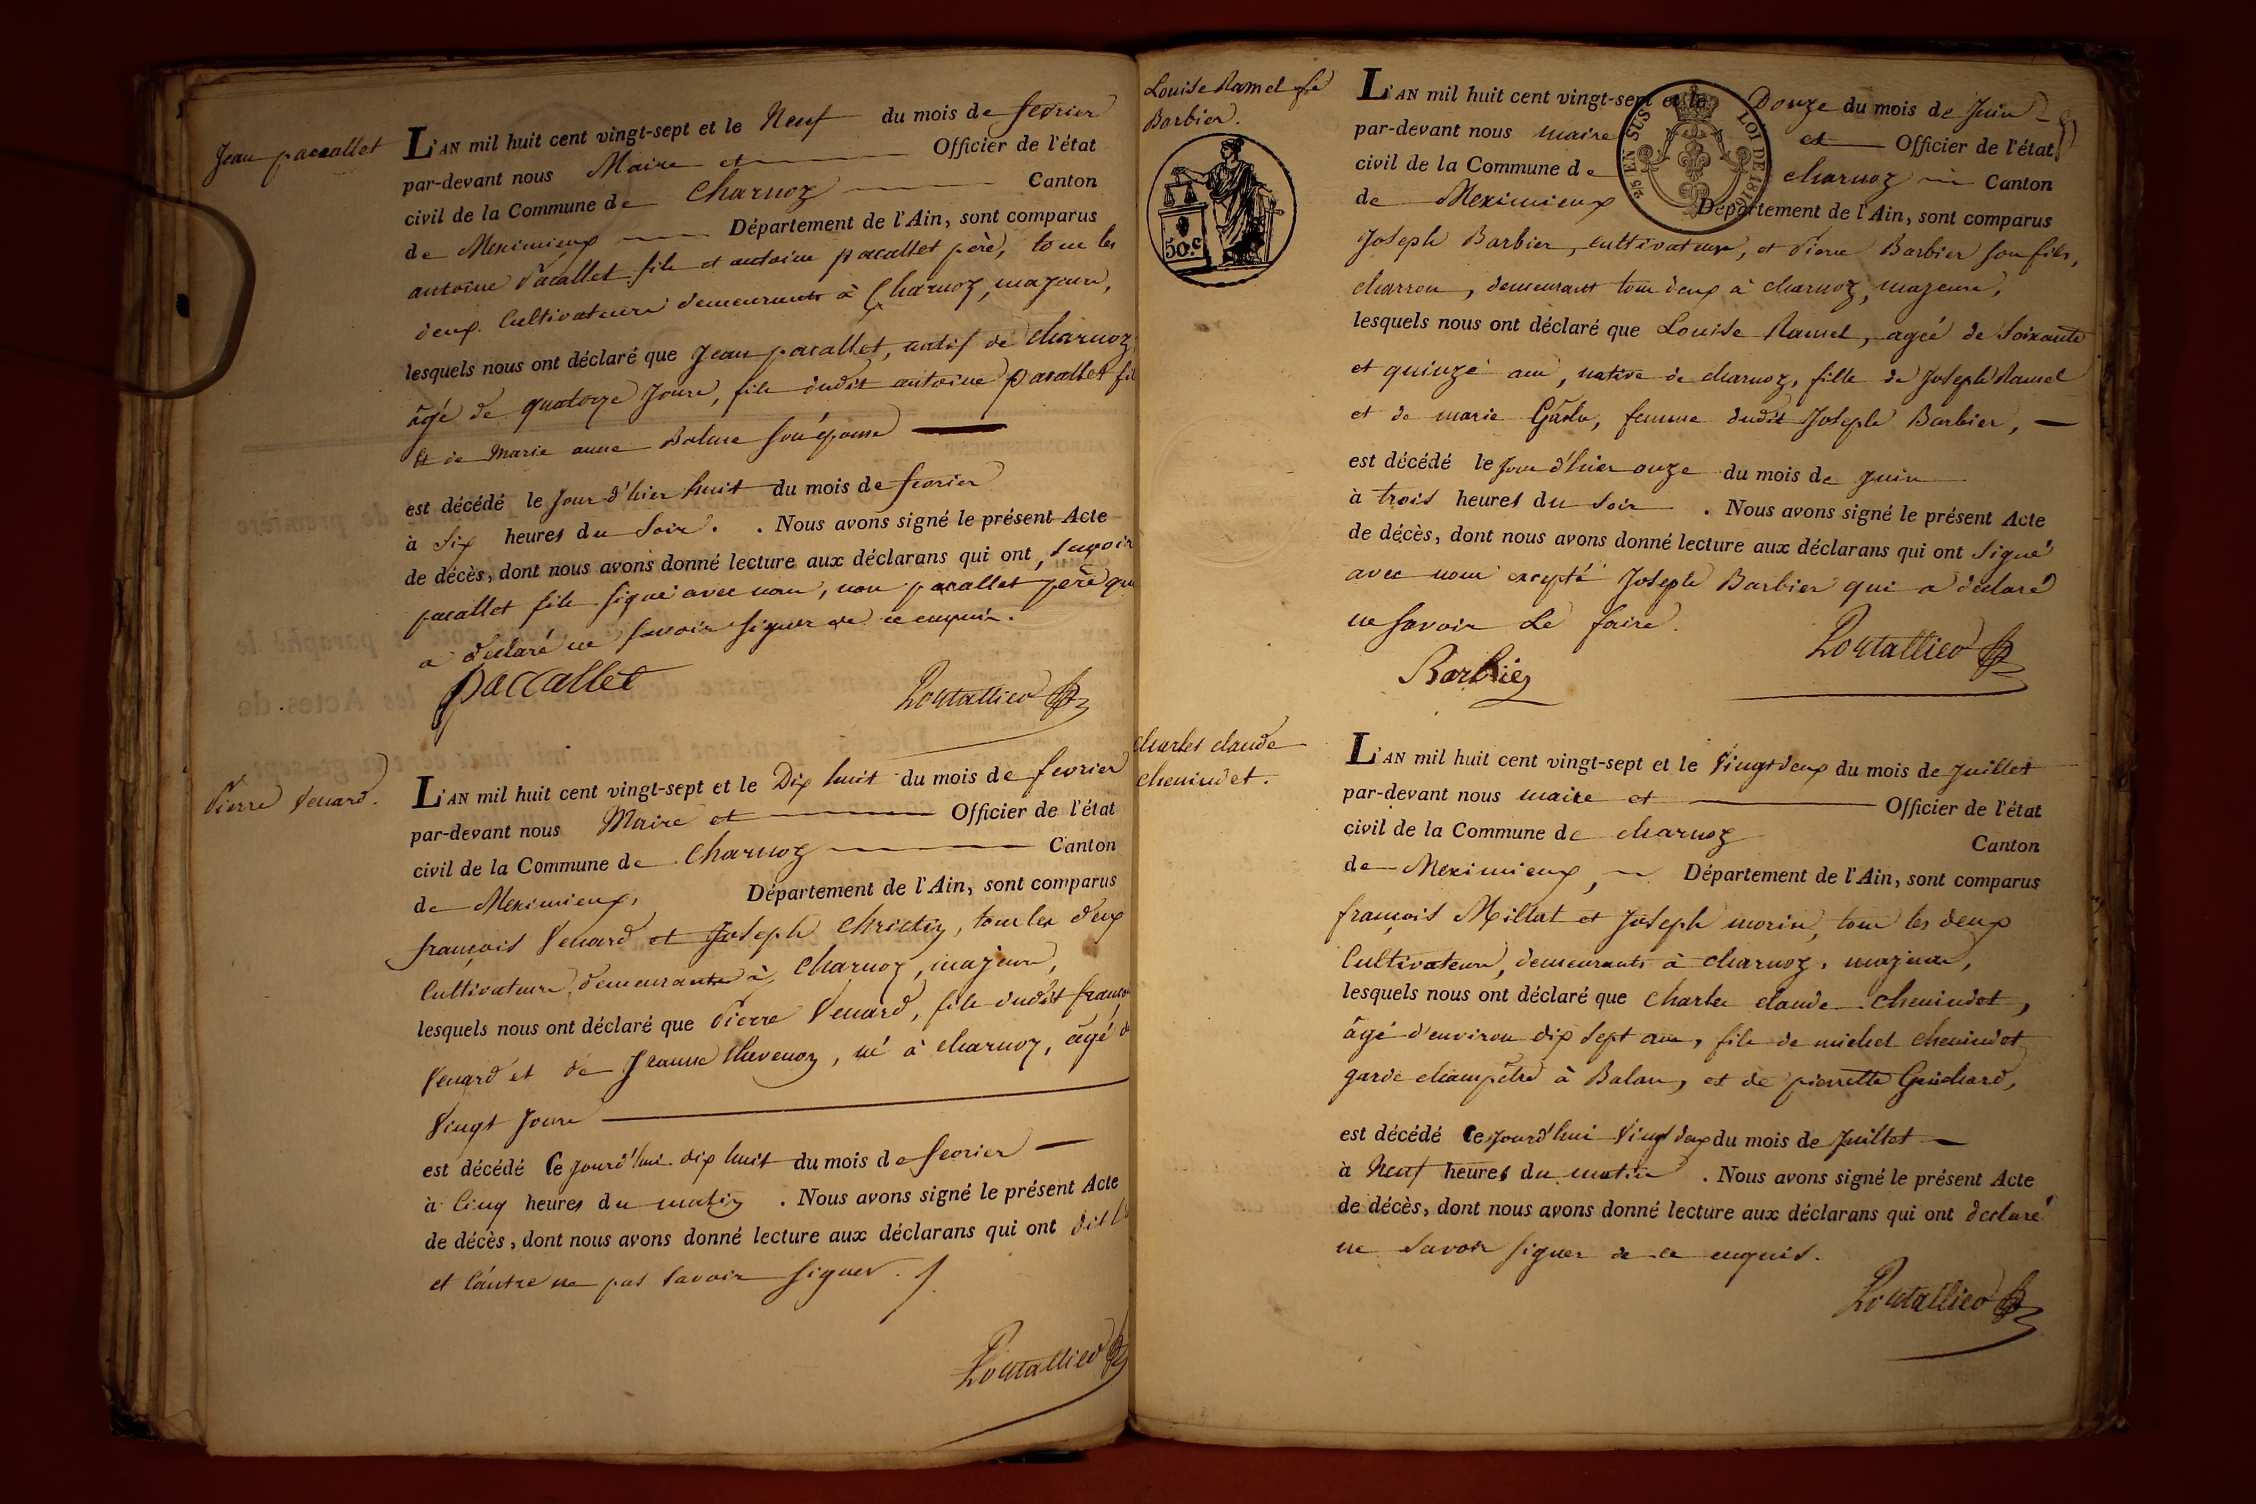 Jean paccallet
L'AN mil huit cent vingt-sept et le Neuf du mois de fevrier
par-devant nous Maire et Officier de l'état
civil de la Commune de Charnoz Canton
de Meximieux Département de l'Ain, sont comparus
antoine Pacallet fils et antoine pacallet père, tous les
deux Cultivateurs demeurants à Charnoz, majeurs,
lesquels nous ont déclaré que Jean pacallet, natif de charnoz
âgé de quatorze Jours, fils dudit antoine pacallet fil
et de Marie anne Balme son épouse
est décédé le Jour d'hier huit du mois de fevrier
à Six heures du Soir. . Nous avons signé le présent Acte
de décès, dont nous avons donné lecture aux déclarans qui ont, savoir
pacallet fils signé avec nous, non pacallet père qui
a déclaré ne savoir signer de ce enquis.
paccallet
Pierre Venard.
L'AN mil huit cent vingt-sept et le Dix huit du mois de fevrier
par-devant nous Maire et Officier de l'état
civil de la Commune de Charnoz Canton
de Meximieux, Département de l'Ain, sont comparus
françois Venard et Joseph Christin, tous les deux
Cultivateurs demeurants à Charnoz, majeurs,
lesquels nous ont déclaré que Pierre Venard, fils dudit franço
Venard et de Jeanne thevenoz, né à charnoz, âgé d
Vingt Jours
est décédé Ce jourd'hui dix huit du mois de fevrier
à Cinq heures du matin . Nous avons signé le présent Acte
de décès, dont nous avons donné lecture aux déclarans qui ont dit l'
et l'autre ne pas savoir signer.
Louise Ramel fe
Barbier.
50.c
25 EN SUS LOI DE 1816
L'AN mil huit cent vingt-sept et le Douze du mois de Juin
par-devant nous maire et Officier de l'état
civil de la Commune de charnoz Canton
de Meximieux Département de l'Ain, sont comparus
Joseph Barbier, cultivateur, et Pierre Barbier son fils,
charron, demeurant tous deux à charnoz, majeurs,
lesquels nous ont déclaré que Louise Ramel, agée de Soixante
et quinze ans, native de charnoz, fille de Joseph Ramel
et de marie femme dudit Joseph Barbier,
est décédé le jour d'hier onze du mois de Juin
à trois heures du soir . Nous avons signé le présent Acte
de décès, dont nous avons donné lecture aux déclarans qui ont Signé
avec nous excepté Joseph Barbier qui a déclaré
ne savoir le faire.
Barbier
charles claude
chenindet.
L'AN mil huit cent vingt-sept et le Vingt deux du mois de Juillet
par-devant nous maire et Officier de l'état
civil de la Commune de charnoz Canton
de Meximieux, Département de l'Ain, sont comparus
françois Millat et Joseph morin, tous les deux
Cultivateurs, demeurants à charnoz, majeurs,
lesquels nous ont déclaré que Charles claude chenindet,
âgé d'environ dix sept ans, fils de michel chenindet
garde champêtre à Balan, et de pierrette Guichard,
est décédé Ce jourd'hui Vingt deux du mois de Juillet
à Neuf heures du matin . Nous avons signé le présent Acte
de décès, dont nous avons donné lecture aux déclarans qui ont declaré
ne savoir signer de ce enquis.